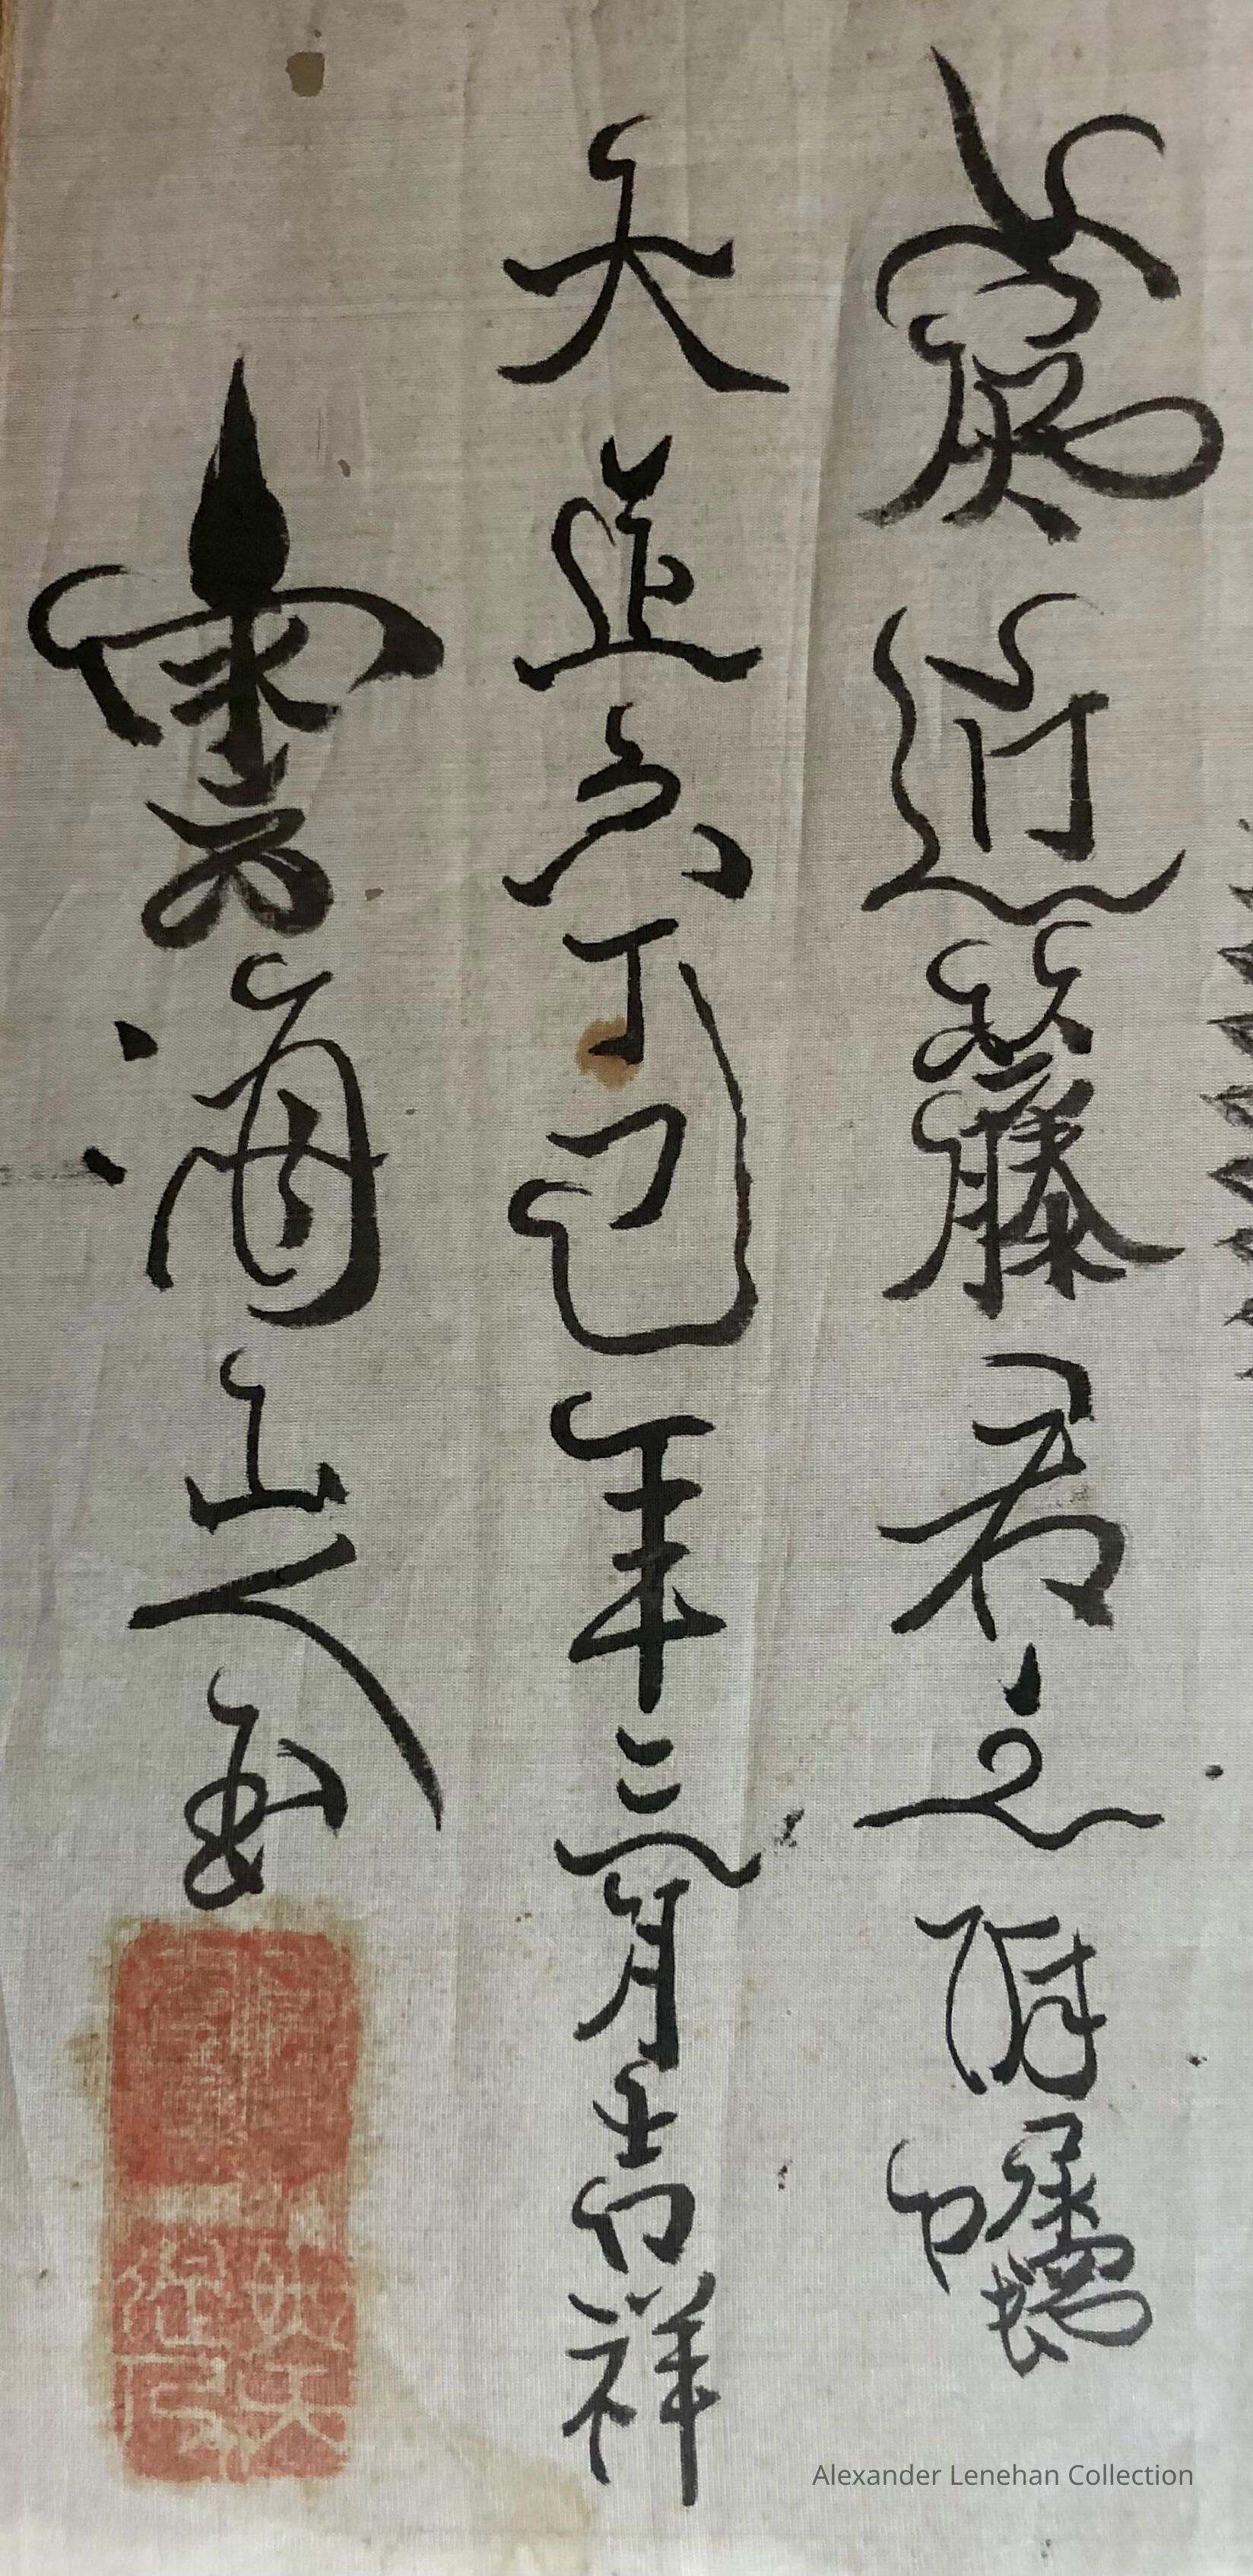 近藤君之附嘱
大正六丁巳年三月吉祥
雲海山人
Alexander Lenehan Collection